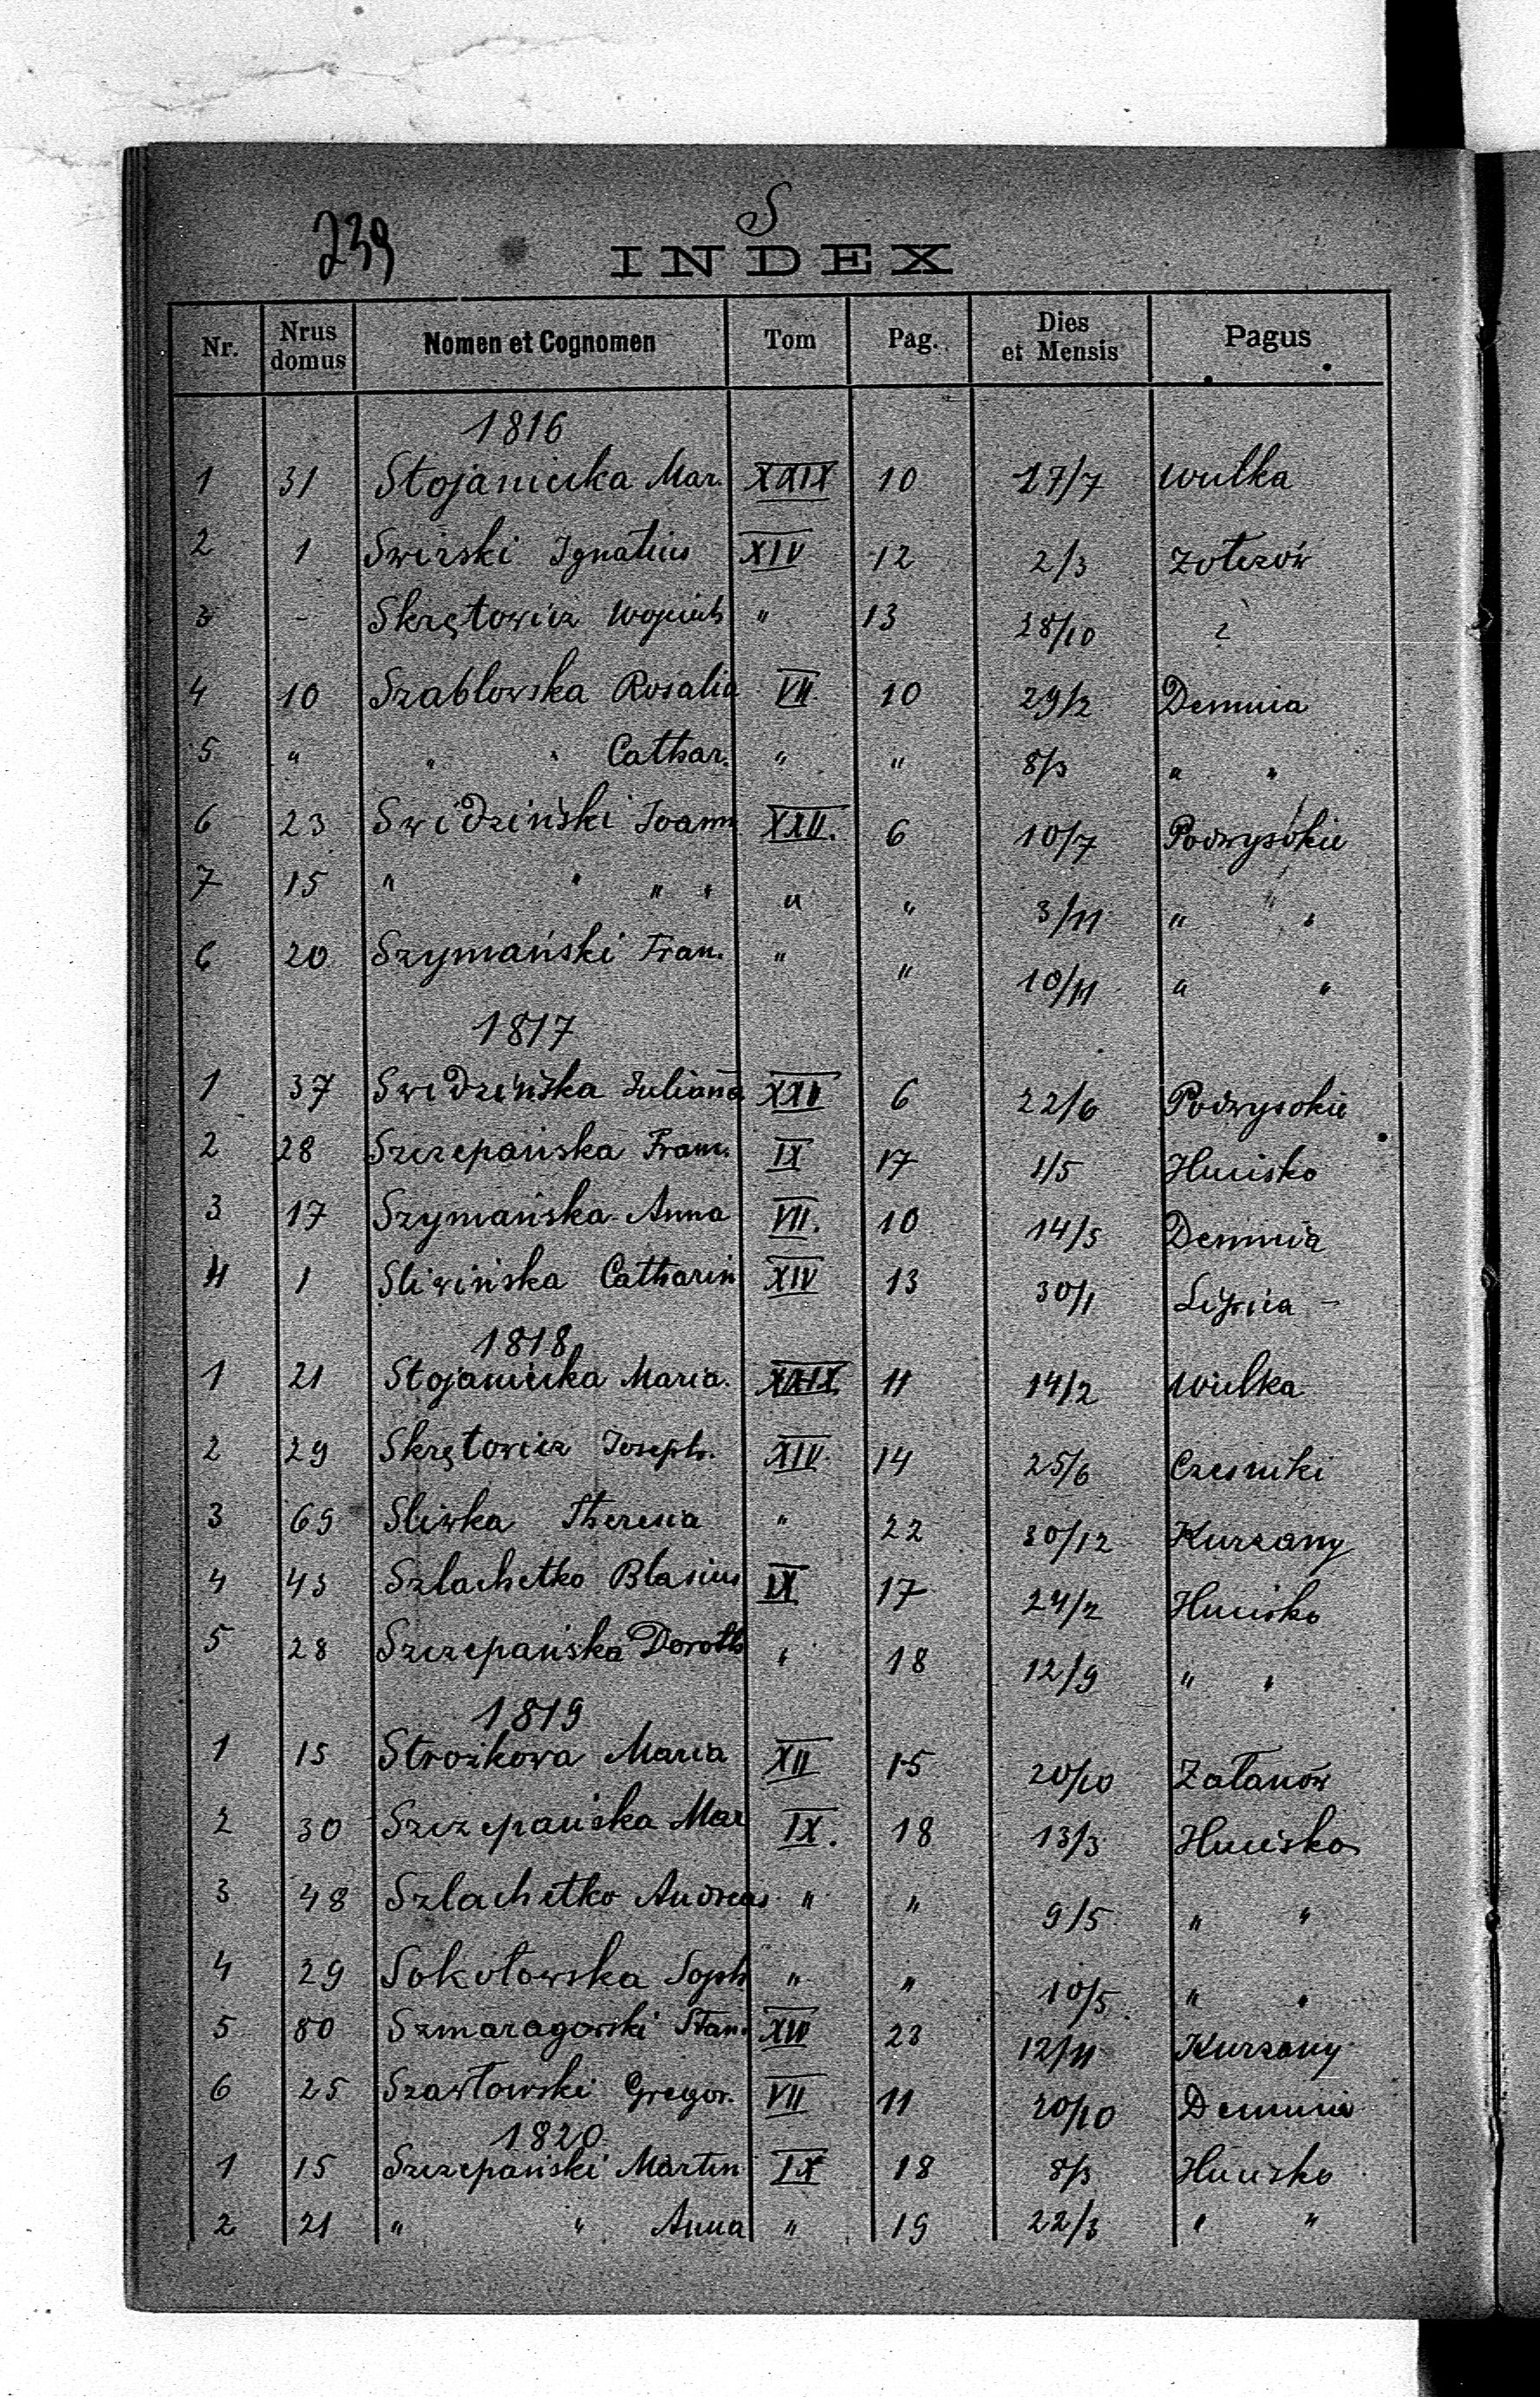 S
239
INDEX
Nr. Nrus domus Nomen et Cognomen Tom Pag. Dies et Mensis Pagus
1816
1 31 Stojanicka Mar. XXIX 10 27/7 Wulka
2 1 Swirski Ignatius XIV 12 2/3 Zołczów
3 - Skrętowicz Wojciech " 13 28/10 ?
4 10 Szablowska Rosalia VII 10 29/2 Demnia
5 " " " Cathar. " " 8/3 " "
6 23 Swidziński Joann XXII. 6 10/7 Podwysokie
7 15 " " " " " " 3/11 " " "
6 20 Szymański Fran. " " 10/11 " "
1817
1 37 Swidzińska Juliana XXII 6 22/6 Podwysokie
2 28 Szczepańska Fran. IX 17 1/5 Hucisko
3 17 Szymańska Anna VII. 10 14/5 Demnia
4 1 Sliwińska Catharin XIV 13 30/1 Lipica -
1818
1 21 Stojanicka Maria. XXIX 11 14/2 Wulka
2 29 Skrętowicz Joseph. XIV 14 25/6 Czesniki
3 69 Sliwka Theresia " 22 30/12 Kurzany
4 43 Szlachetko Blasius IX 17 24/2 Hucisko
5 28 Szczepańska Doroth " 18 12/9 " "
1819
1 15 Strożkowa Maria XII 15 20/10 Załanów
2 30 Szczepańska Mar IX. 18 13/3 Hucisko
3 48 Szlachetko Andreas " " 9/5 " "
4 29 Sokołowska Soph " " 10/5 " "
5 80 Szmaragowski Stan. XIV 23 12/11 Kurzany
6 25 Szawłowski Gregor. VII 11 20/10 Demnia
1820
1 15 Szczepański Martin IX 18 8/3 Hucisko
2 21 " " Anna " 19 22/3 " "